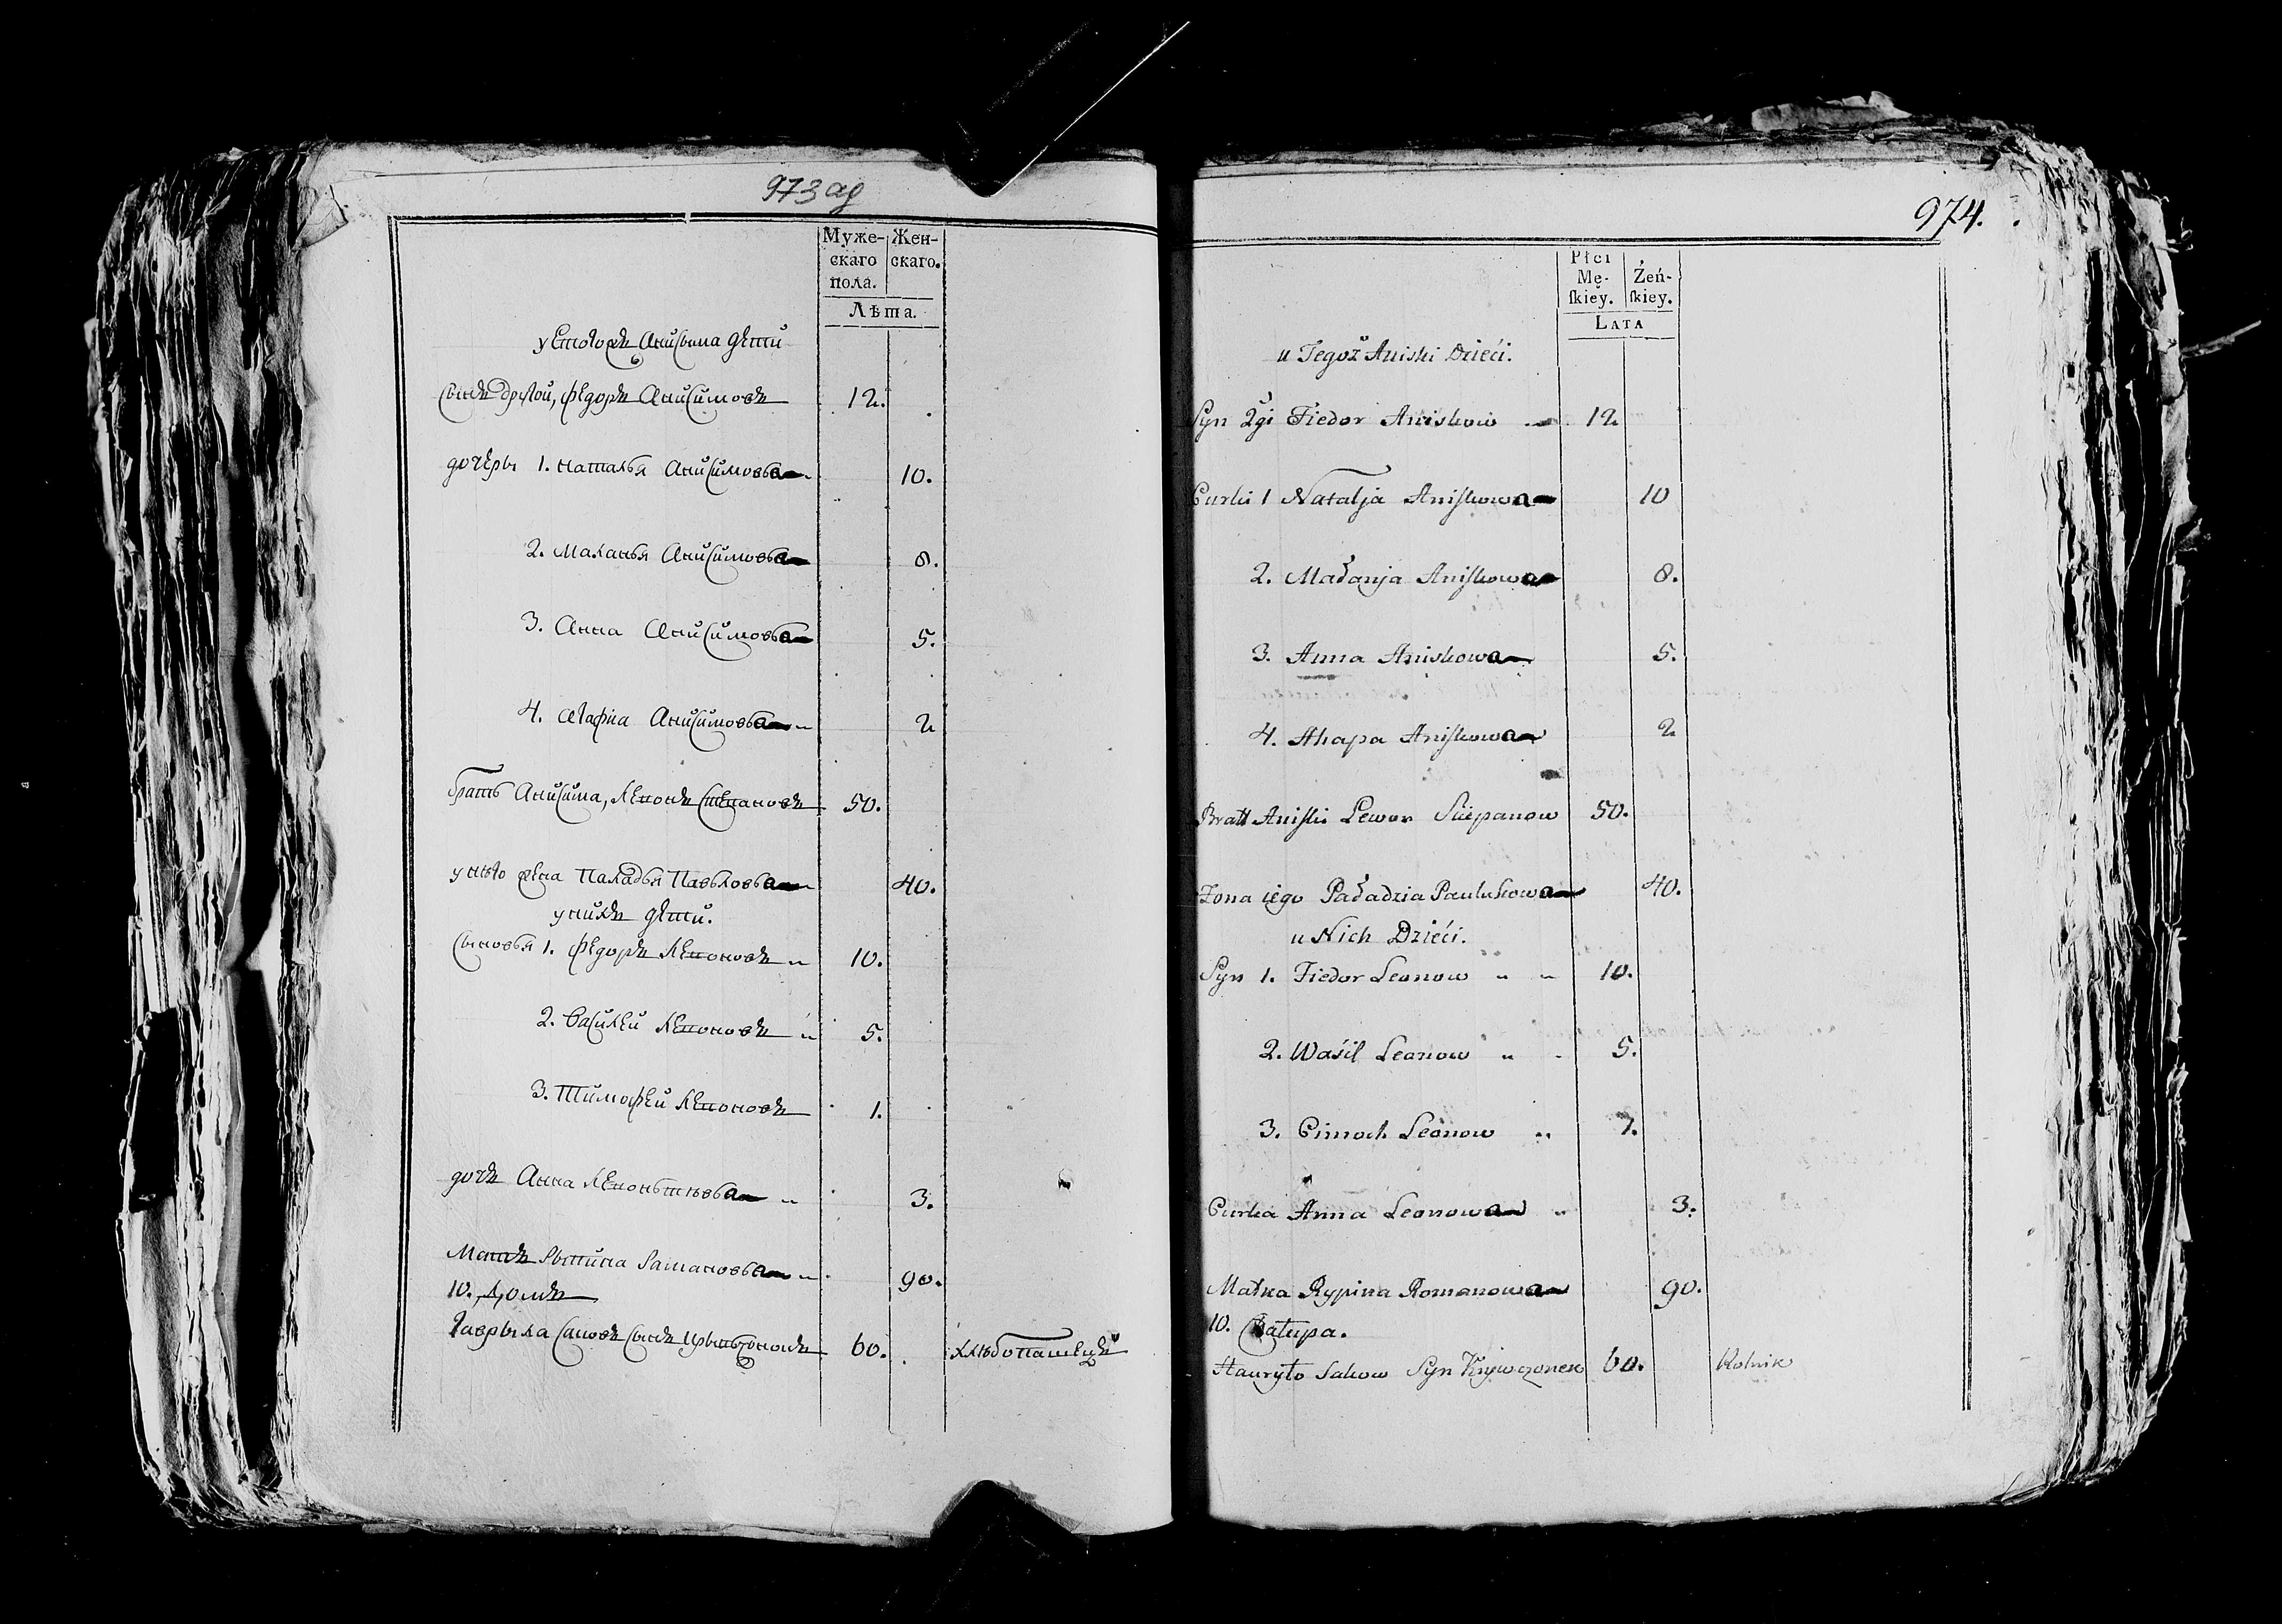 973 ад
Муже-
скаго
пола.
Жен-
скаго.
Лѣта.
у Егожъ Анисима дети
Сынъ другой, Федоръ Анисимовъ 12.
дочеры 1. Наталья Анисимовва 10.
2. Маланья Анисимовва 8.
3. Анна Анисимовва 5.
4. Агафиа Анисимовва 2
братъ Анисима, Леонъ Степановъ 50.
у него жена Паладья Павьловва 40.
у нихъ дети.
Сыновья 1. Федоръ Леоновъ " 10.
2. Василей Леоновъ " 5.
3. Тимофей Леоновъ 1.
дочъ Анна " 3.
Матъ Рыпина Рамановва " 90.
10., Домъ
Гаврыла Саковъ Сынъ 60. хлѣбопашецъ
974.
Płci
Mę-
ſkiey.
Żeń-
ſkiey.
LATA
u Tegoż Aniski Dzieći.
Syn 2gi Fiedor Aniskow 12
Curki 1 Natalja Aniſkowa 10
2. Małanja Aniſkowa 8.
3. Anna Aniskowa 5.
4. Ahapa Aniſkowa 2
Bratt Aniſki Lewon Sciepanow 50.
Zona iego Paładzia Paulukowa 40.
u Nich Dzieći.
Syn 1. Fiedor Leonow " " 10.
2. Waśil Leonow " 5.
3. Cimoch Leonow " 1.
Curka Anna Leonowa " 3.
Matka Rypina Romanowa 90.
10. Chatupa.
Hauryło Sakow Syn Krywczonek 60. Rolnik